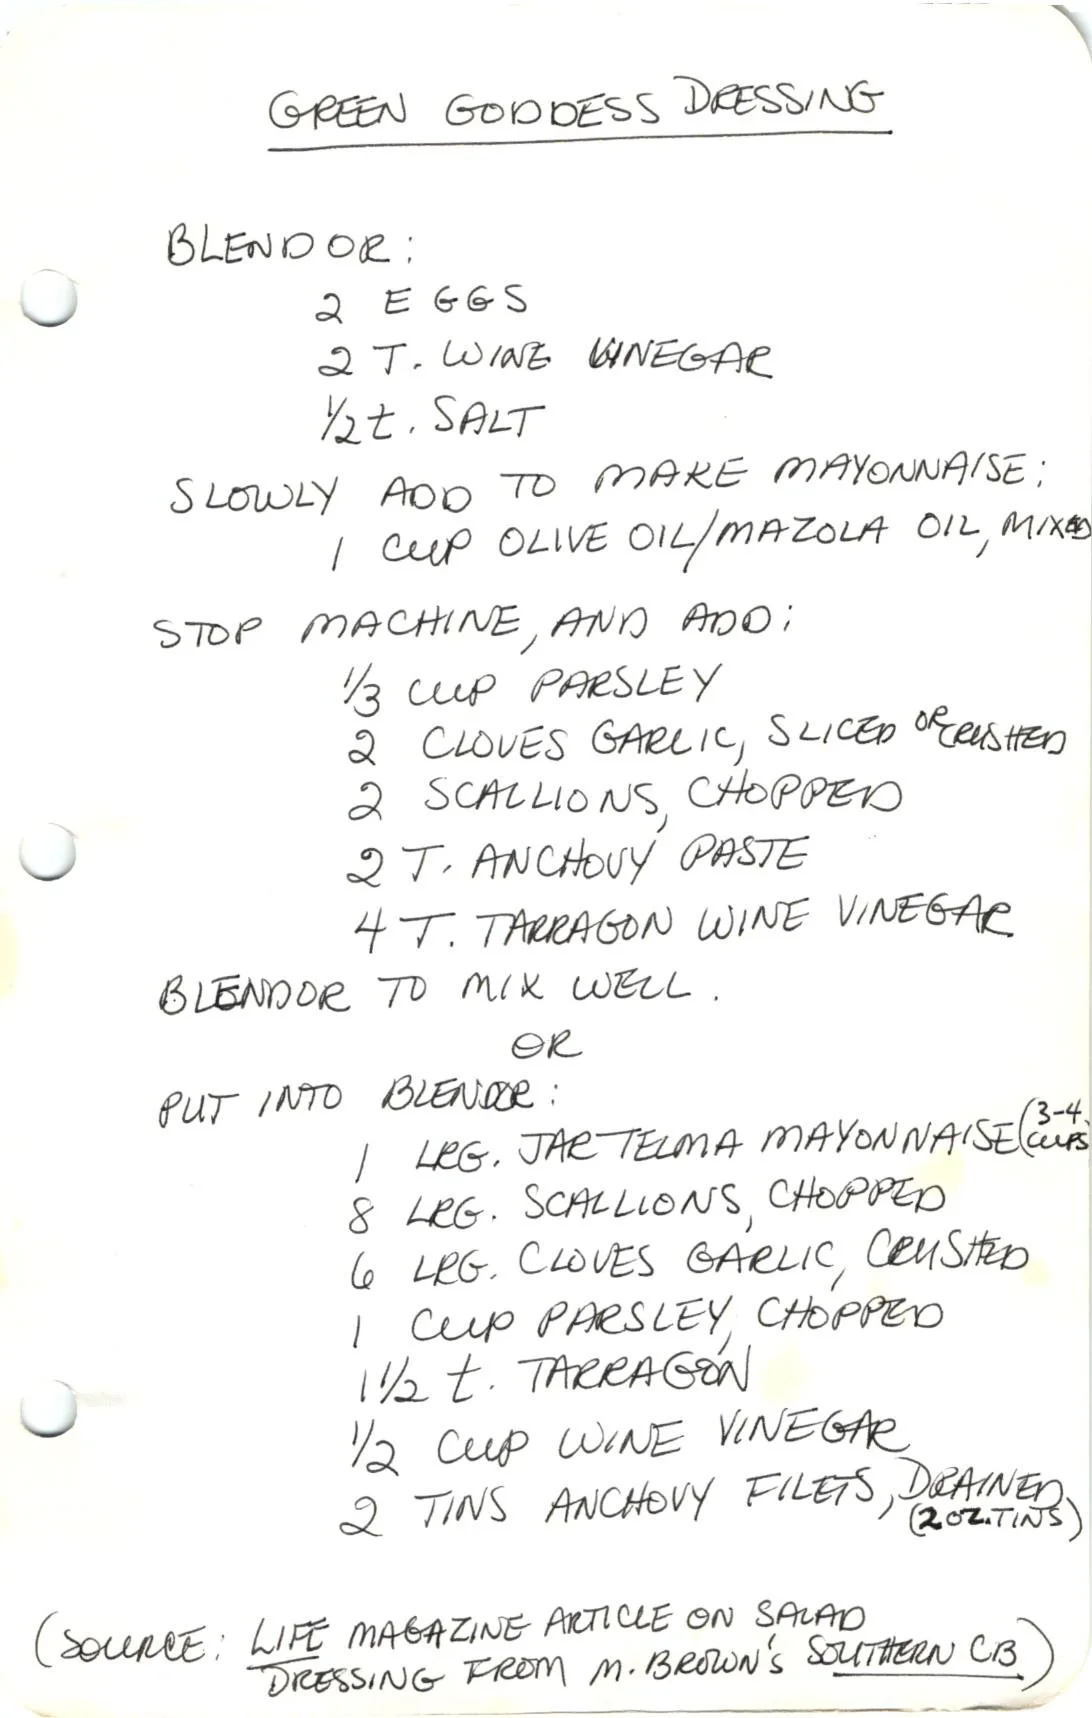 GREEN GODDESS DRESSING
BLENDOR:
2 EGGS
2 T. WINE VINEGAR
1/2 t. SALT
SLOWLY ADD TO MAKE MAYONNAISE:
1 CUP OLIVE OIL/MAZOLA OIL, MIXED
STOP MACHINE, AND ADD:
1/3 CUP PARSLEY
2 CLOVES GARLIC, SLICED OR CRUSHED
2 SCALLIONS, CHOPPED
2 T. ANCHOVY PASTE
4 T. TARRAGON WINE VINEGAR
BLENDOR TO MIX WELL.
OR
PUT INTO BLENDOR:
1 LRG. JAR TELMA MAYONNAISE (3-4 CUPS
8 LRG. SCALLIONS, CHOPPED
6 LRG. CLOVES GARLIC, CRUSHED
1 CUP PARSLEY, CHOPPED
1 1/2 t. TARRAGON
1/2 CUP WINE VINEGAR
2 TINS ANCHOVY FILETS, DRAINED
(2 OZ. TINS)
(SOURCE: LIFE MAGAZINE ARTICLE ON SALAD
DRESSING FROM M. BROWN'S SOUTHERN CB)